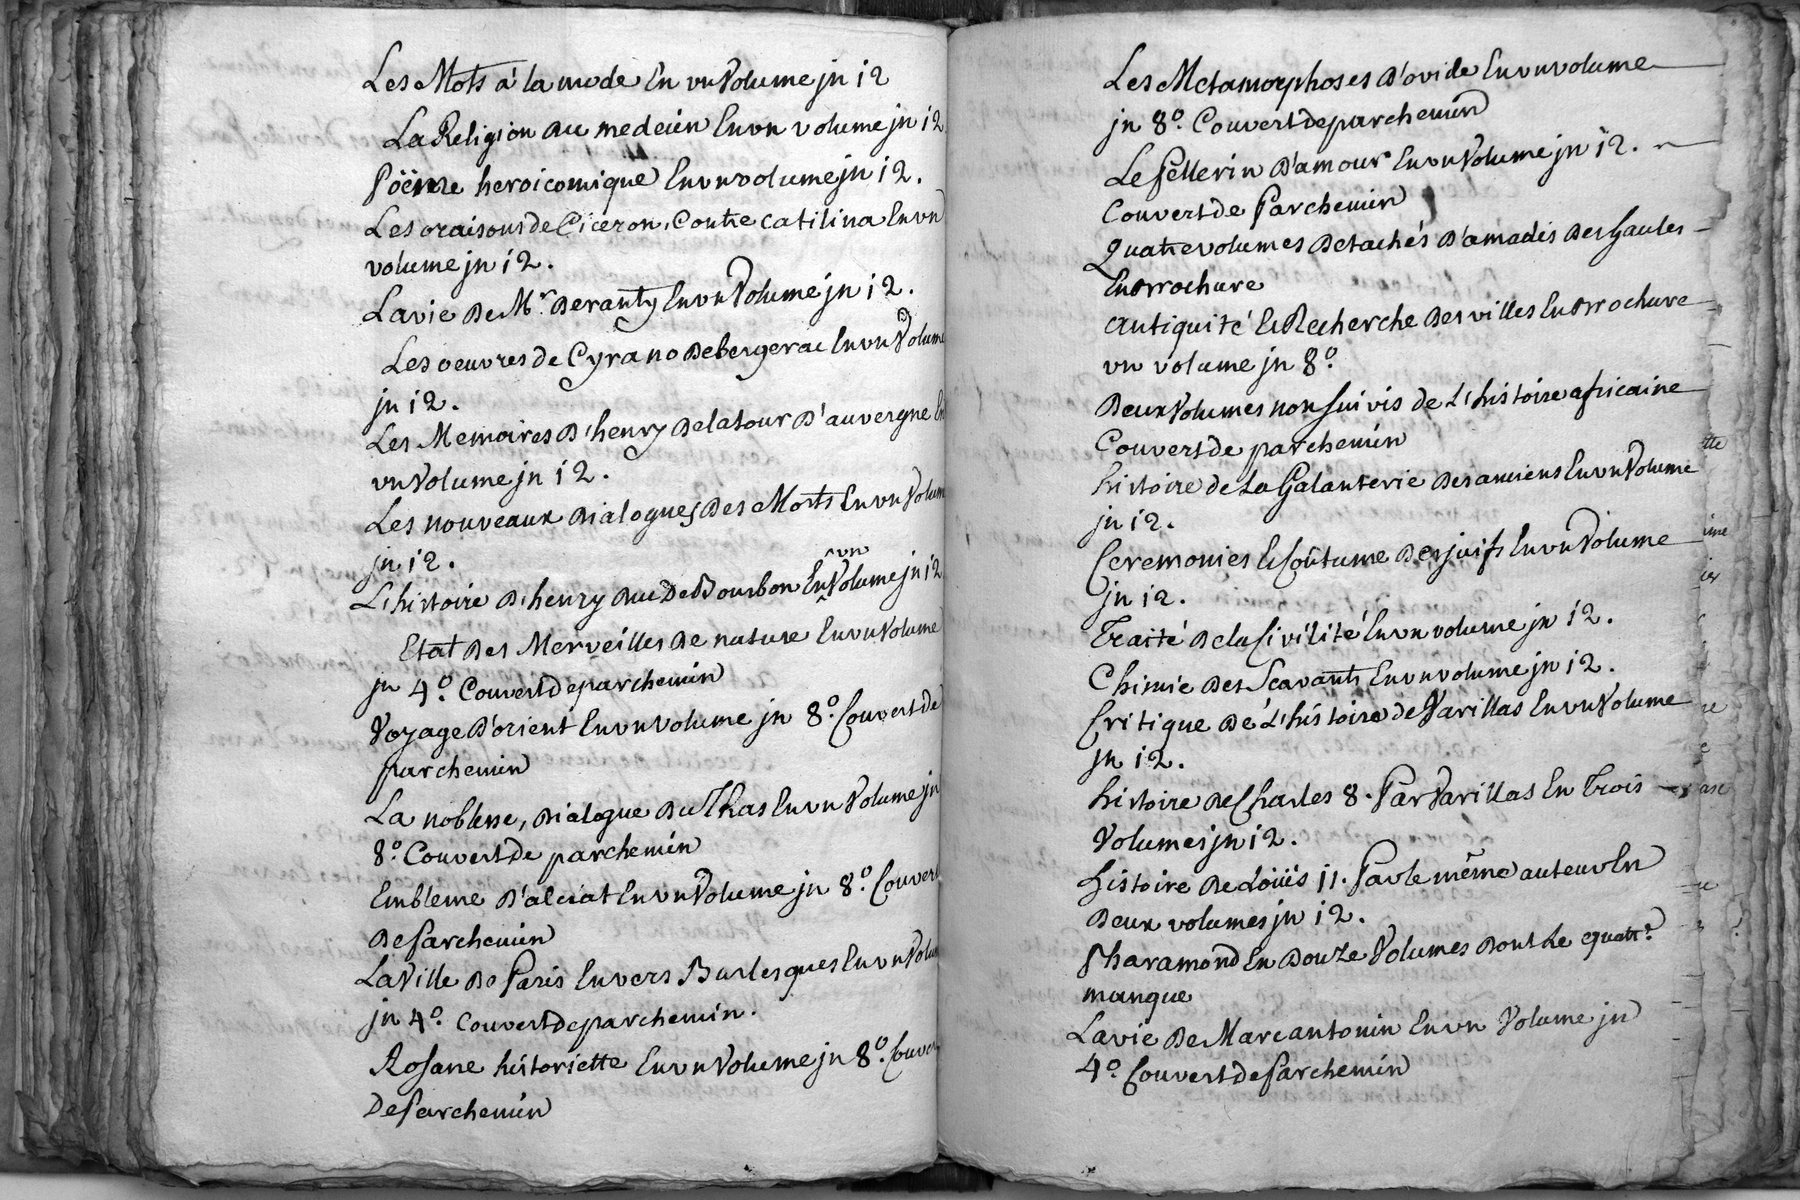 Les Mots à la mode En vn Volume jn 12
La Religion du medecin En vn volume jn 12
Poëme heroicomique En vn volume jn 12.
Les oraisons de Ciceron, Contre catilina En vn
volume jn 12.
La vie De Mr. De ranty En vn Volume jn 12.
Les oeuvres de Cyrano De bergerac En vn Volume
jn 12.
Les Memoires D'henry De la tour D'auvergne En
vn Volume jn 12.
Les nouveaux Dialogues Des Morts En vn Volum
jn 12.
L'histoire D'henry Duc De Bourbon En vn Volume jn 12
Etat Des Merveilles De nature En vn Volume
jn 4o. Couvert De parchemin
Voyage D'orient En vn Volume jn 8o. Couvert De
parchemin
La noblesse, Dialogue Du Thas En vn Volume jn
8o. Couvert De parchemin
Embleme D'alciat En vn Volume jn 8o. Couvert
De Parchemin
La Ville De Paris En vers Burlesques En vn Volum
jn 4o. Couvert De parchemin.
Rosane historiette En vn Volume jn 8o. Couver
De Parchemin
Les Metamorphoses D'ovide En vn volume
jn 8o. Couvert de parchemin
Le Pellerin D'amour En vn Volume jn 12.
Couvert de Parchemin
Quatre volumes Detachés D'amadis Des Gaules
En Brochure
Antiquité Et Recherche Des villes En Brochure
vn volume jn 8o.
Deux Volumes non Suivis de L'histoire africaine
Couvert De parchemin
histoire de La Galanterie Des anciens En vn Volume
jn 12.
Ceremonies Et Coûtume Des juifs En vn Volume
jn 12.
Traité De la Civilité En vn volume jn 12.
Chimie Des Scavants En vn volume jn 12.
Critique De L'histoire de Varillas En vn Volume
jn 12.
histoire De Charles 8. Par Varillas En Trois
Volumes jn 12.
histoire De Loüis 11. Par le même auteur En
Deux volumes jn 12.
Pharamond En Douze Volumes Dont Le quatre
manque
La vie De Marc antonin En vn Volume jn
4o. Couvert De Parchemin